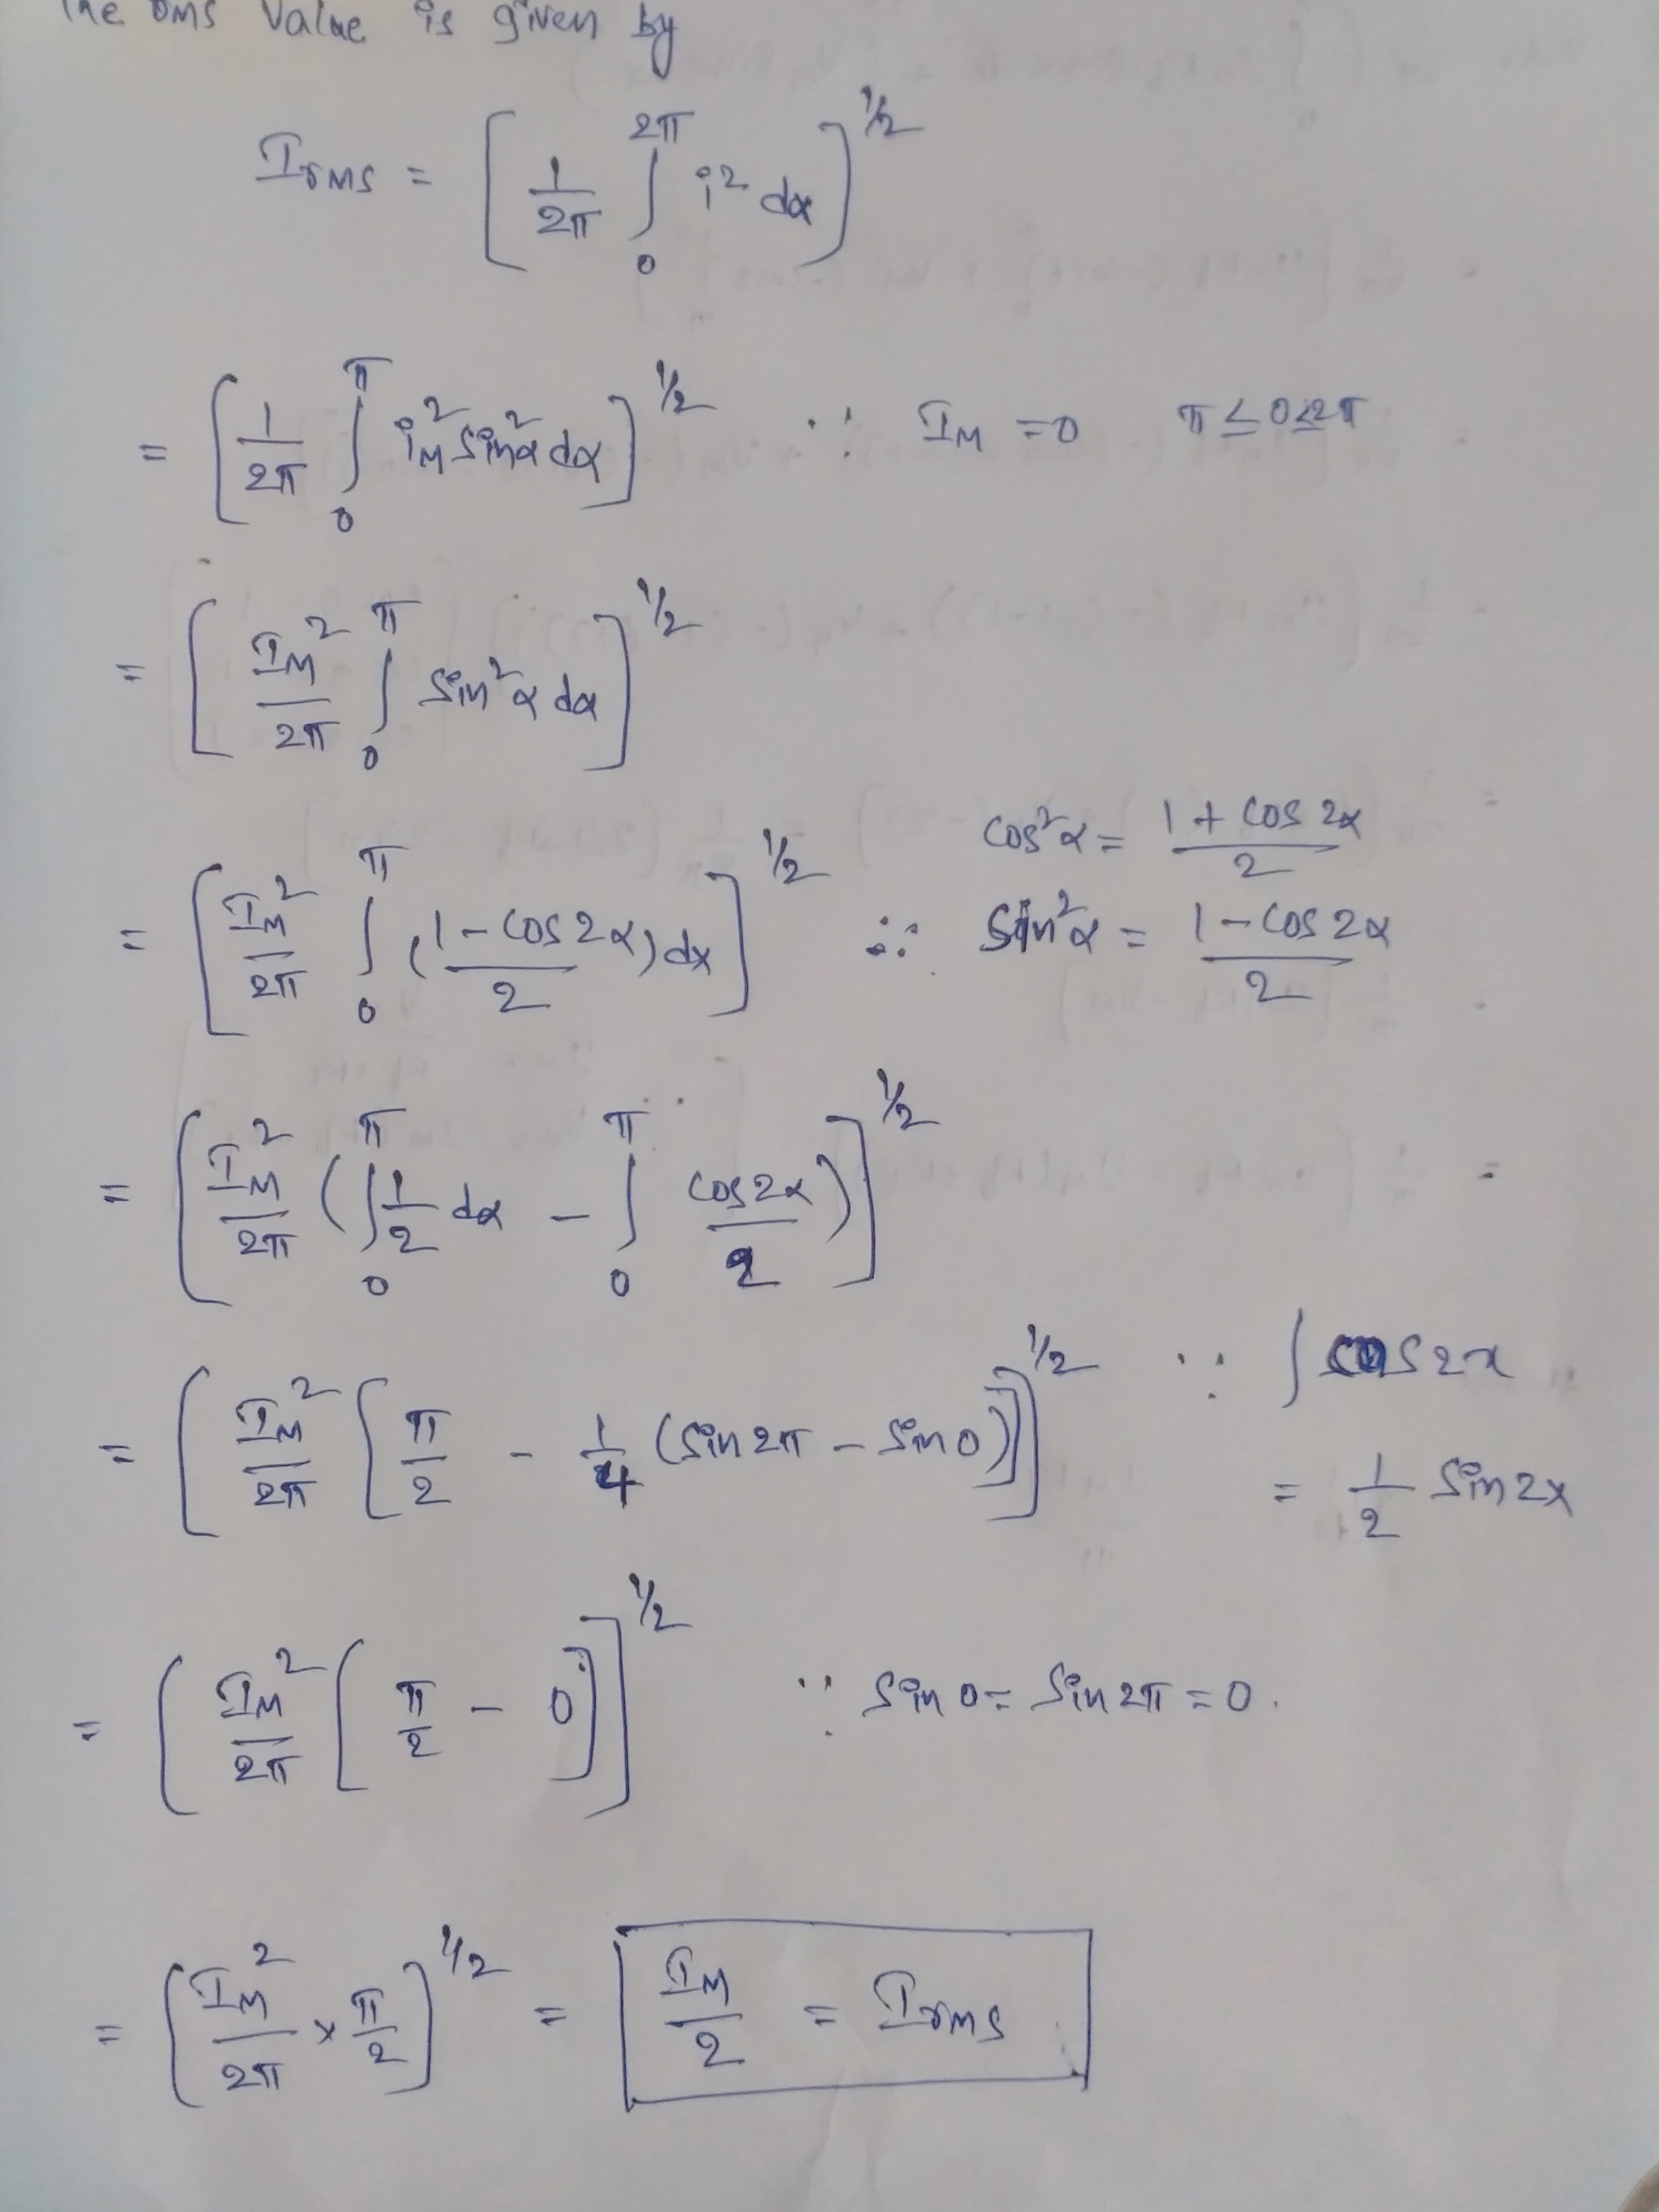 The rms value is given by
Irms = [1/2π ∫₀^2π i² dα]^1/2
= [1/2π ∫₀^π iM² sin²α dα]^1/2 ∵ IM = 0 π ≤ 0 ≤ 2π
= [IM²/2π ∫₀^π sin²α dα]^1/2
cos²α = 1 + cos 2α / 2
= [IM²/2π ∫₀^π (1 - cos 2α / 2) dx]^1/2 ∴ sin²α = 1 - cos 2α / 2
= [IM²/2π (∫₀^π 1/2 dα - ∫₀^π cos 2α / 2)]^1/2
= [IM²/2π [π/2 - 1/4 (sin 2π - sin 0)]]^1/2 ∵ ∫ cos 2x
= 1/2 sin 2x
= [IM²/2π [π/2 - 0]]^1/2 ∵ sin 0 = sin 2π = 0.
= [IM²/2π × π/2]^1/2 = IM/2 = Irms